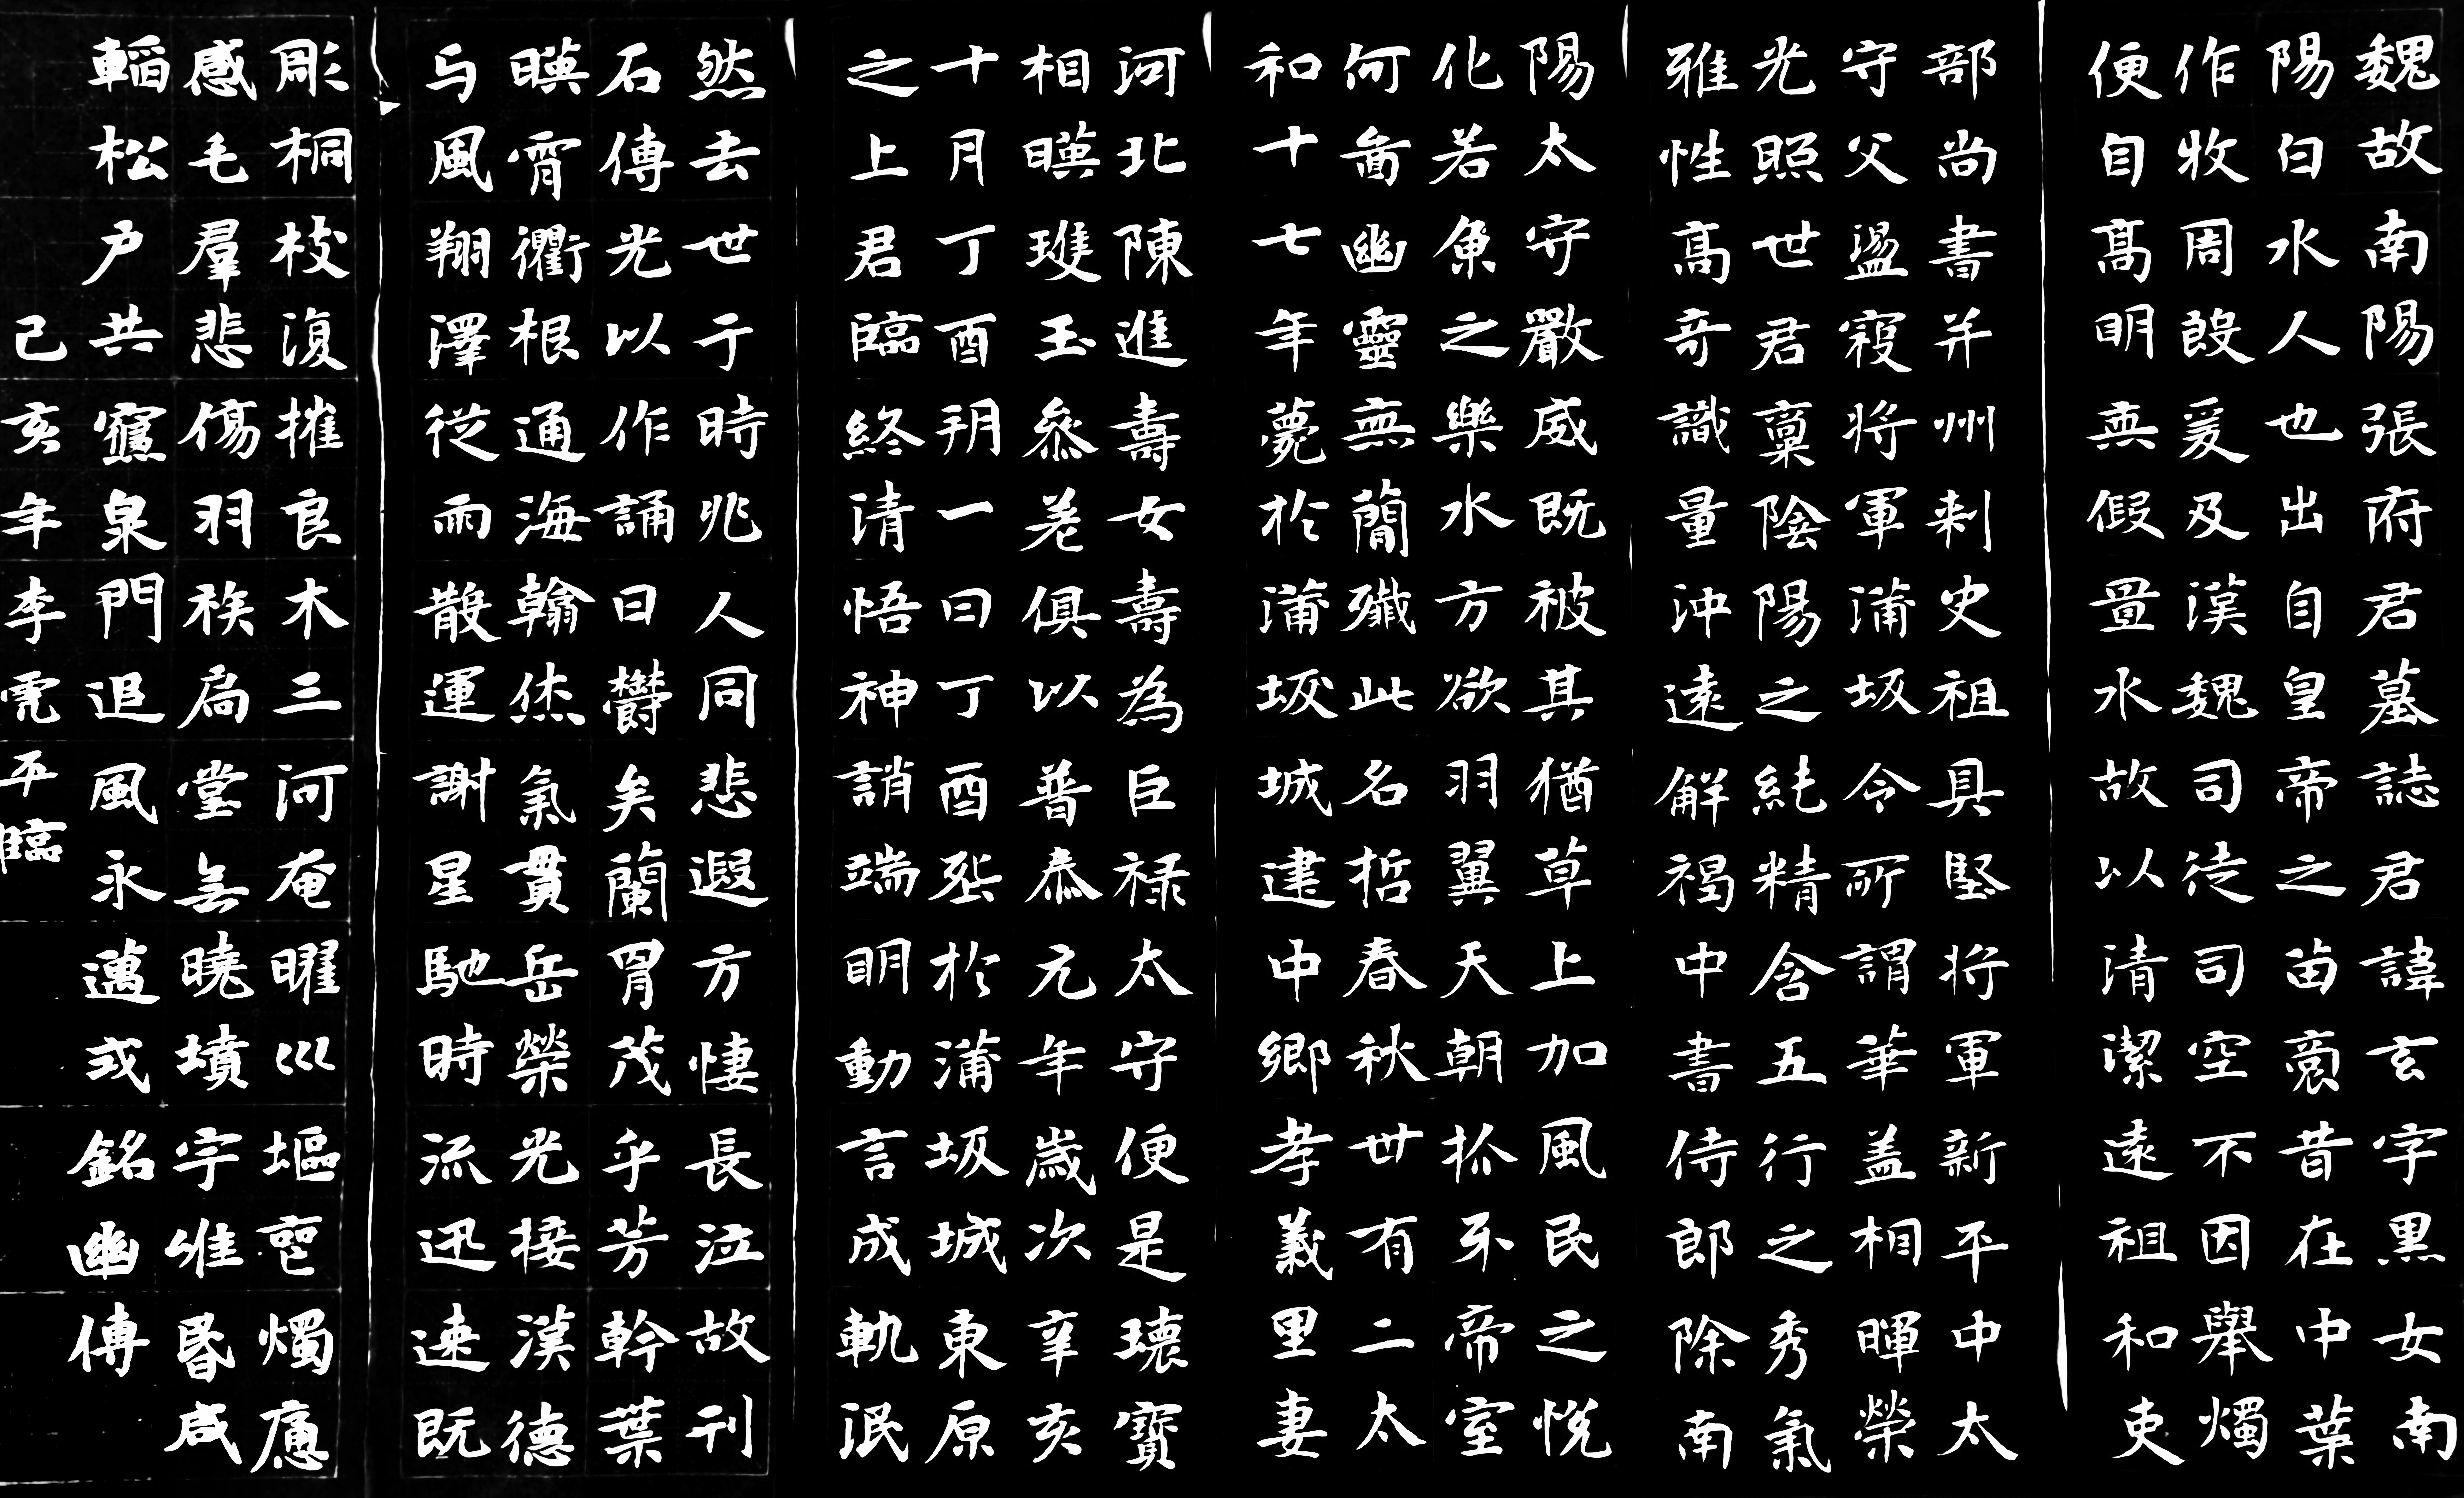 魏故南陽張府君墓誌君諱玄字黑女南
陽白水人也出自皇帝之苗裔昔在中葉
作牧周殷爰及漢魏司徒司空不因舉燭
便自高明無假置水故以清潔遠祖和吏
部尚書并州刾史祖具堅將軍新平中太
守父盪寇將軍蒲坂令所謂華盖相暉榮
光照世君稟陰陽之純精含五行之秀氣
雅性高奇識量沖遠解褐中書侍郎除南
陽太守嚴威既被其猶草上加風民之悅
化若魚之樂水方欲羽翼天朝抓牙帝室
何啚幽靈無簡殲此名哲春秋世有二太
和十七年薨於蒲坂城建中鄉孝義里妻
河北陳進壽女壽為巨祿太守便是瓌寶
相暎瓊玉參差俱以普泰元年歲次辛亥
十月丁酉朔一日丁酉葬於蒲坂城東原
之上君臨終清悟神誚端明動言成軌泯
然去世于時兆人同悲遐方悽長泣故刊
石傳光以作誦曰鬱矣蘭胄茂乎芳幹葉
暎霄衢根通海翰烋氣貫岳榮光接漢德
与風翔澤從雨散運謝星馳時流迅速既
彫桐枝復摧良木三河奄曜巛塸喪燭應
感毛羣悲傷羽族扃堂無曉墳宇唯昏咸
韜松戶共寢泉門追風永邁式銘幽傳
己亥年李平臨